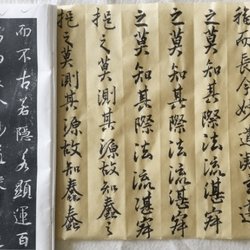 福而長今妙道凝
之莫知其際法流湛寂
之莫知其際法流湛寂
之莫知其際法流湛寂
挹之莫測其源故知蠢蠢
挹之莫測其源故知蠢蠢
而不古若隱若顯運百